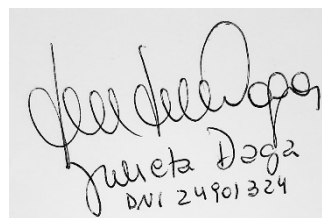 Julieta Daga
DNI 24901324